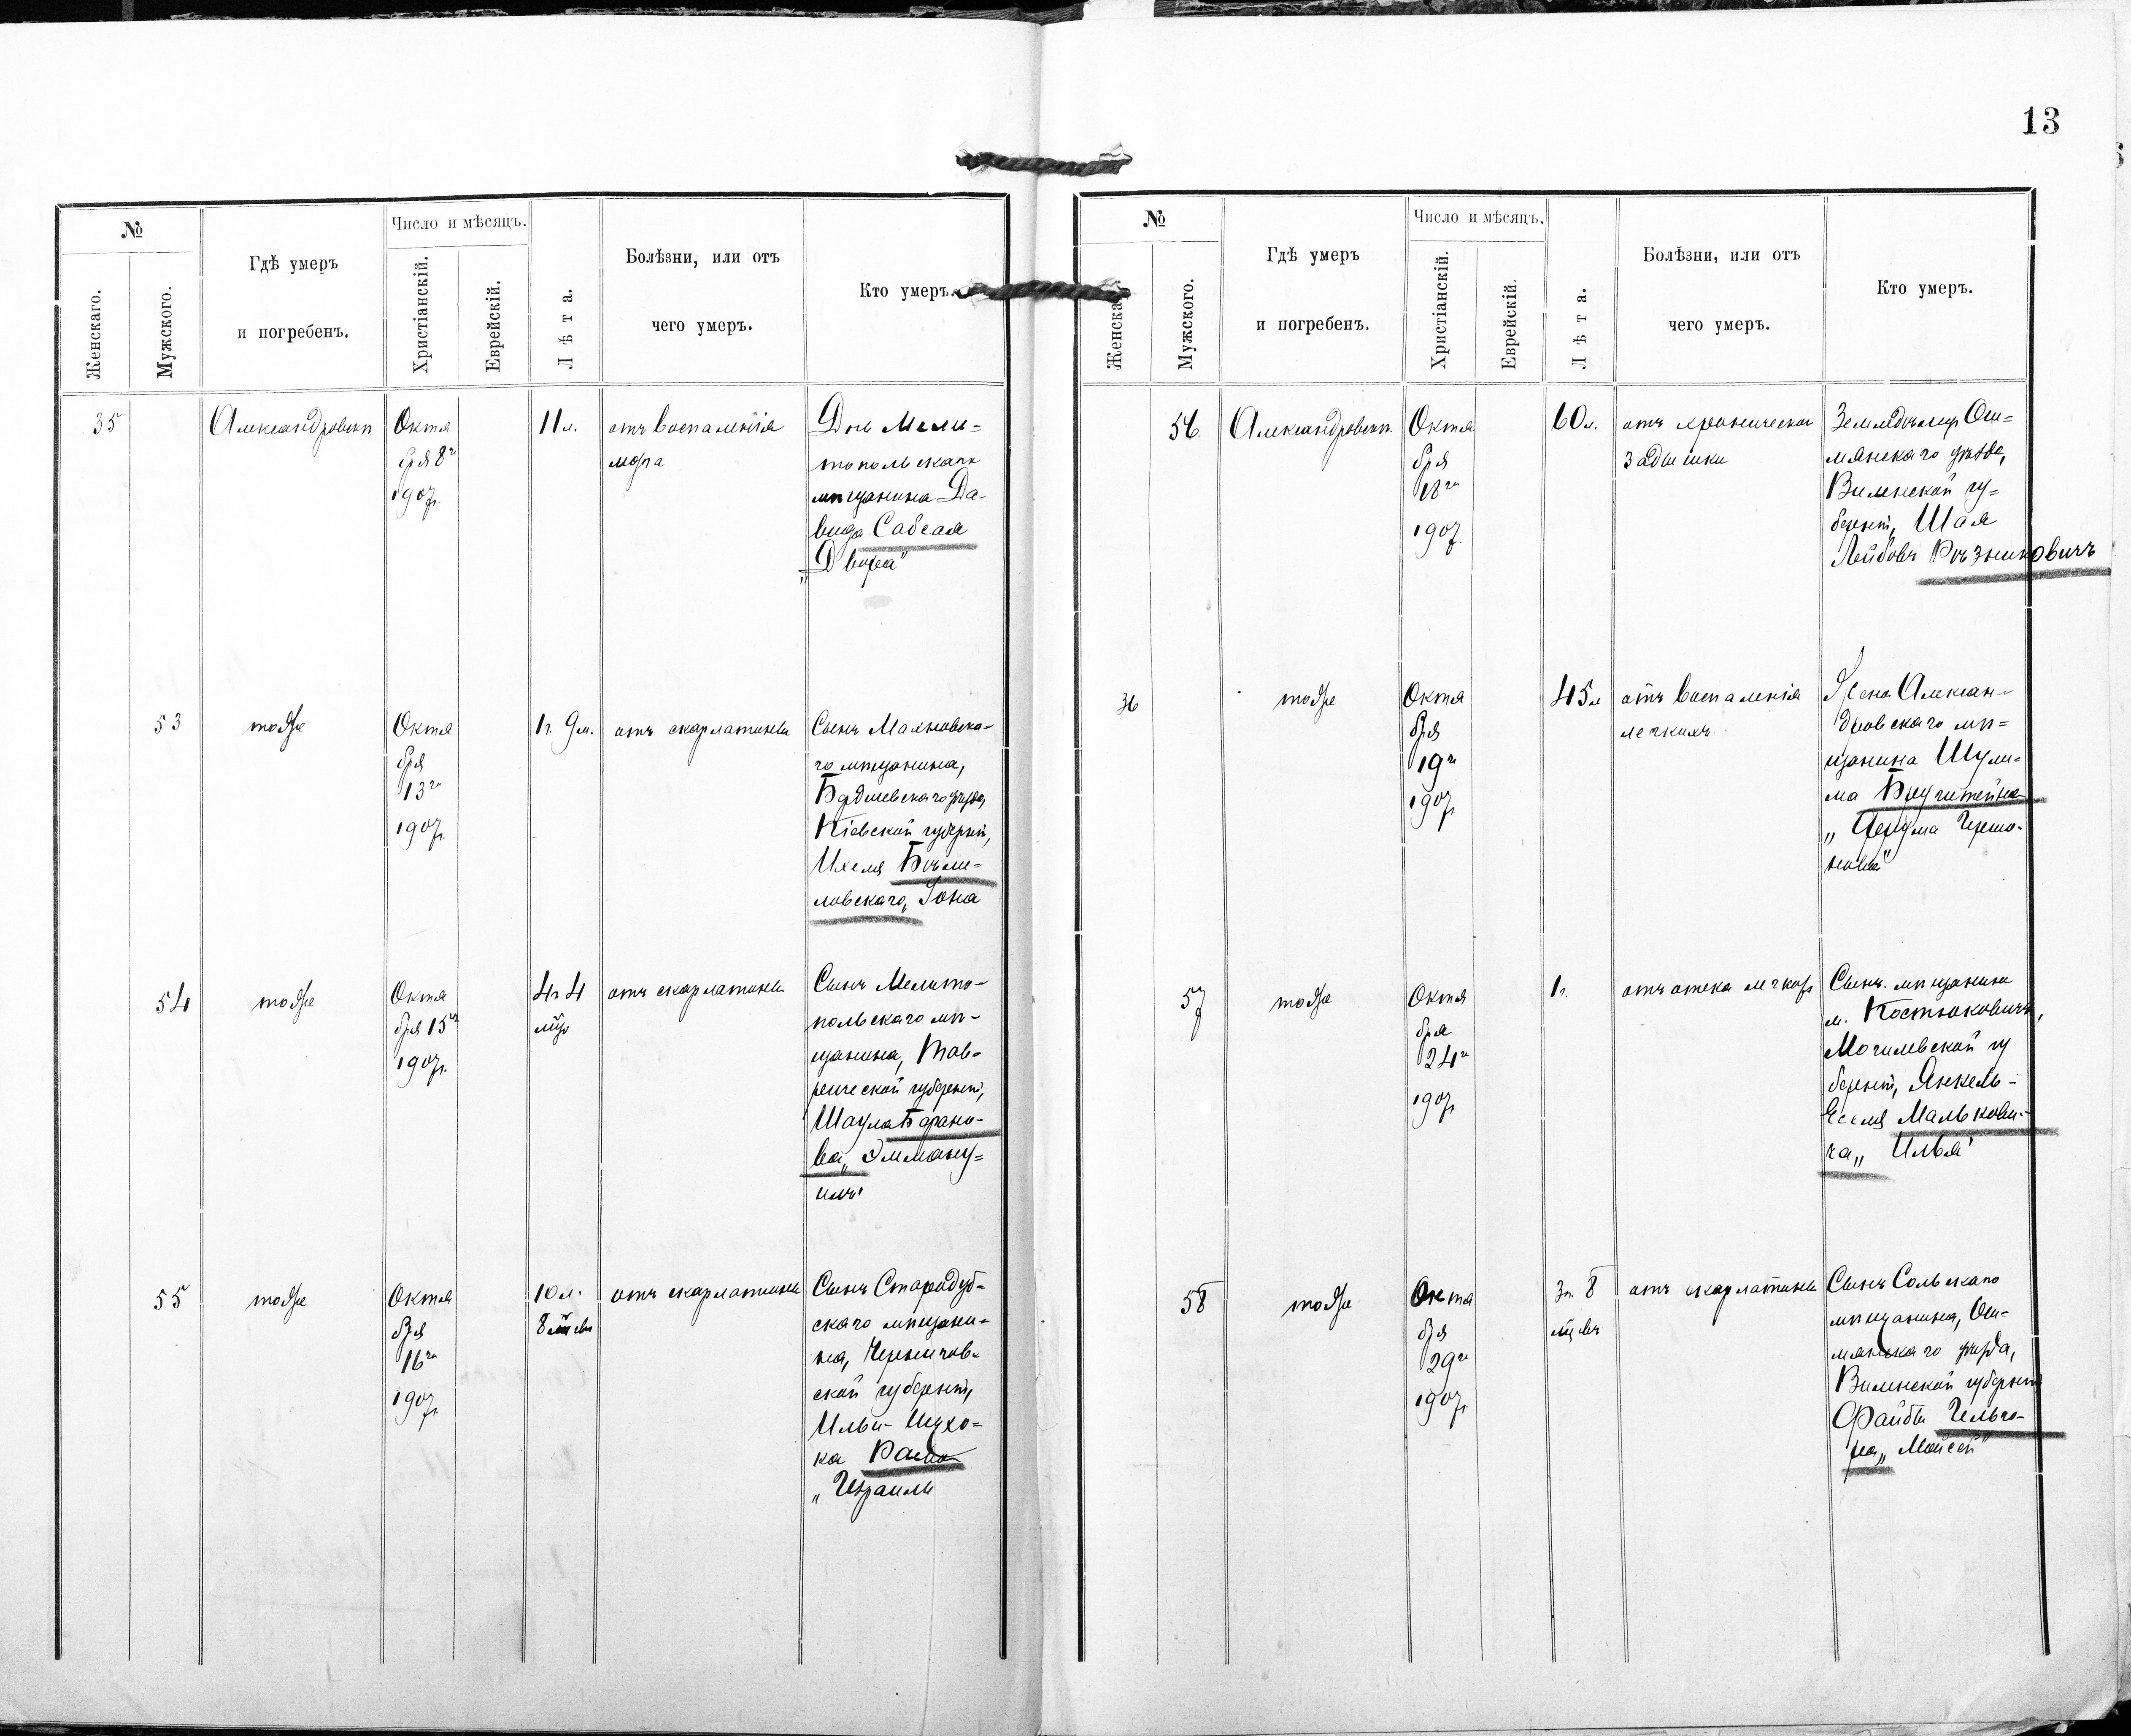 13
№
Число и мѣсяцъ.
Гдѣ умеръ
и погребенъ.
Женскаго.
Мужского.
Христіанскій.
Еврейскій.
Лѣта.
Болѣзни, или отъ
чего умеръ.
Кто умеръ.
35
Александровскъ
Октя
бря 8го
1907г.
11 л.
отъ воспаленія
мозга
Дочь Мели=
топольскаго
мѣщанина Да-
вида Сабсая
„Двойра"
53
тоже
Октя
бря
13го
1907г.
1г. 9м.
отъ скарлатины
Сынъ Махновска-
го мѣщанина,
Бердичевскаго уѣзда,
Кіевской губерніи,
Ихеля Бѣли-
ловскаго, Іона
54
тоже
Октя
бря 15го
1907г.
4г 4
мѣс
отъ скарлатины
Сынъ Мелито-
польскаго мѣ-
щанина, Тав-
рической губерніи,
Шаула Барано-
ва „Эммануи=
илъ"
55
тоже
Октя
бря
16го
1907г.
10 л.
8 мѣсяц
отъ скарлатины
Сынъ Стародуб-
скаго мѣщани=
на, Чернигов-
ской губерніи,
Ильи-Ицхо=
ка
„Израиль
№
Число и мѣсяцъ.
Гдѣ умеръ
и погребенъ.
Женска
Мужского.
Христіанскій.
Еврейскій.
Лѣта.
Болѣзни, или отъ
чего умеръ.
Кто умеръ.
56
Александровскъ.
Октя
бря
18го
1907г.
60 л.
отъ хронической
задышки
Земледѣлецъ Ош=
мянскаго уѣзда,
Виленской гу=
берніи, Шая
Лейбовъ Рѣзниковичъ
36
тоже
Октя
бря
19го
1907г
45 л
отъ воспаленія
легкихъ
Жена Алексан-
дровскаго мѣ=
щанина Шули-
ма
„Фрума Гершо-
нова"
57
тоже
Октя
бря
24го
1907г
1г.
отъ отека легкихъ
Сынъ мѣщанина
м. Костюковичъ,
Могилевской гу
берніи, Янкель-
Еселя Малькови-
ча „Илья"
58
тоже
Октя
бря
29го
1907г
3г. 8
мѣсяцевъ
отъ скарлатины
Сынъ Сольскаго
мѣщанина, Ош-
мянскаго уѣзда,
Виленской губерніи
Файбы Гельго-
ра „Мойсей"